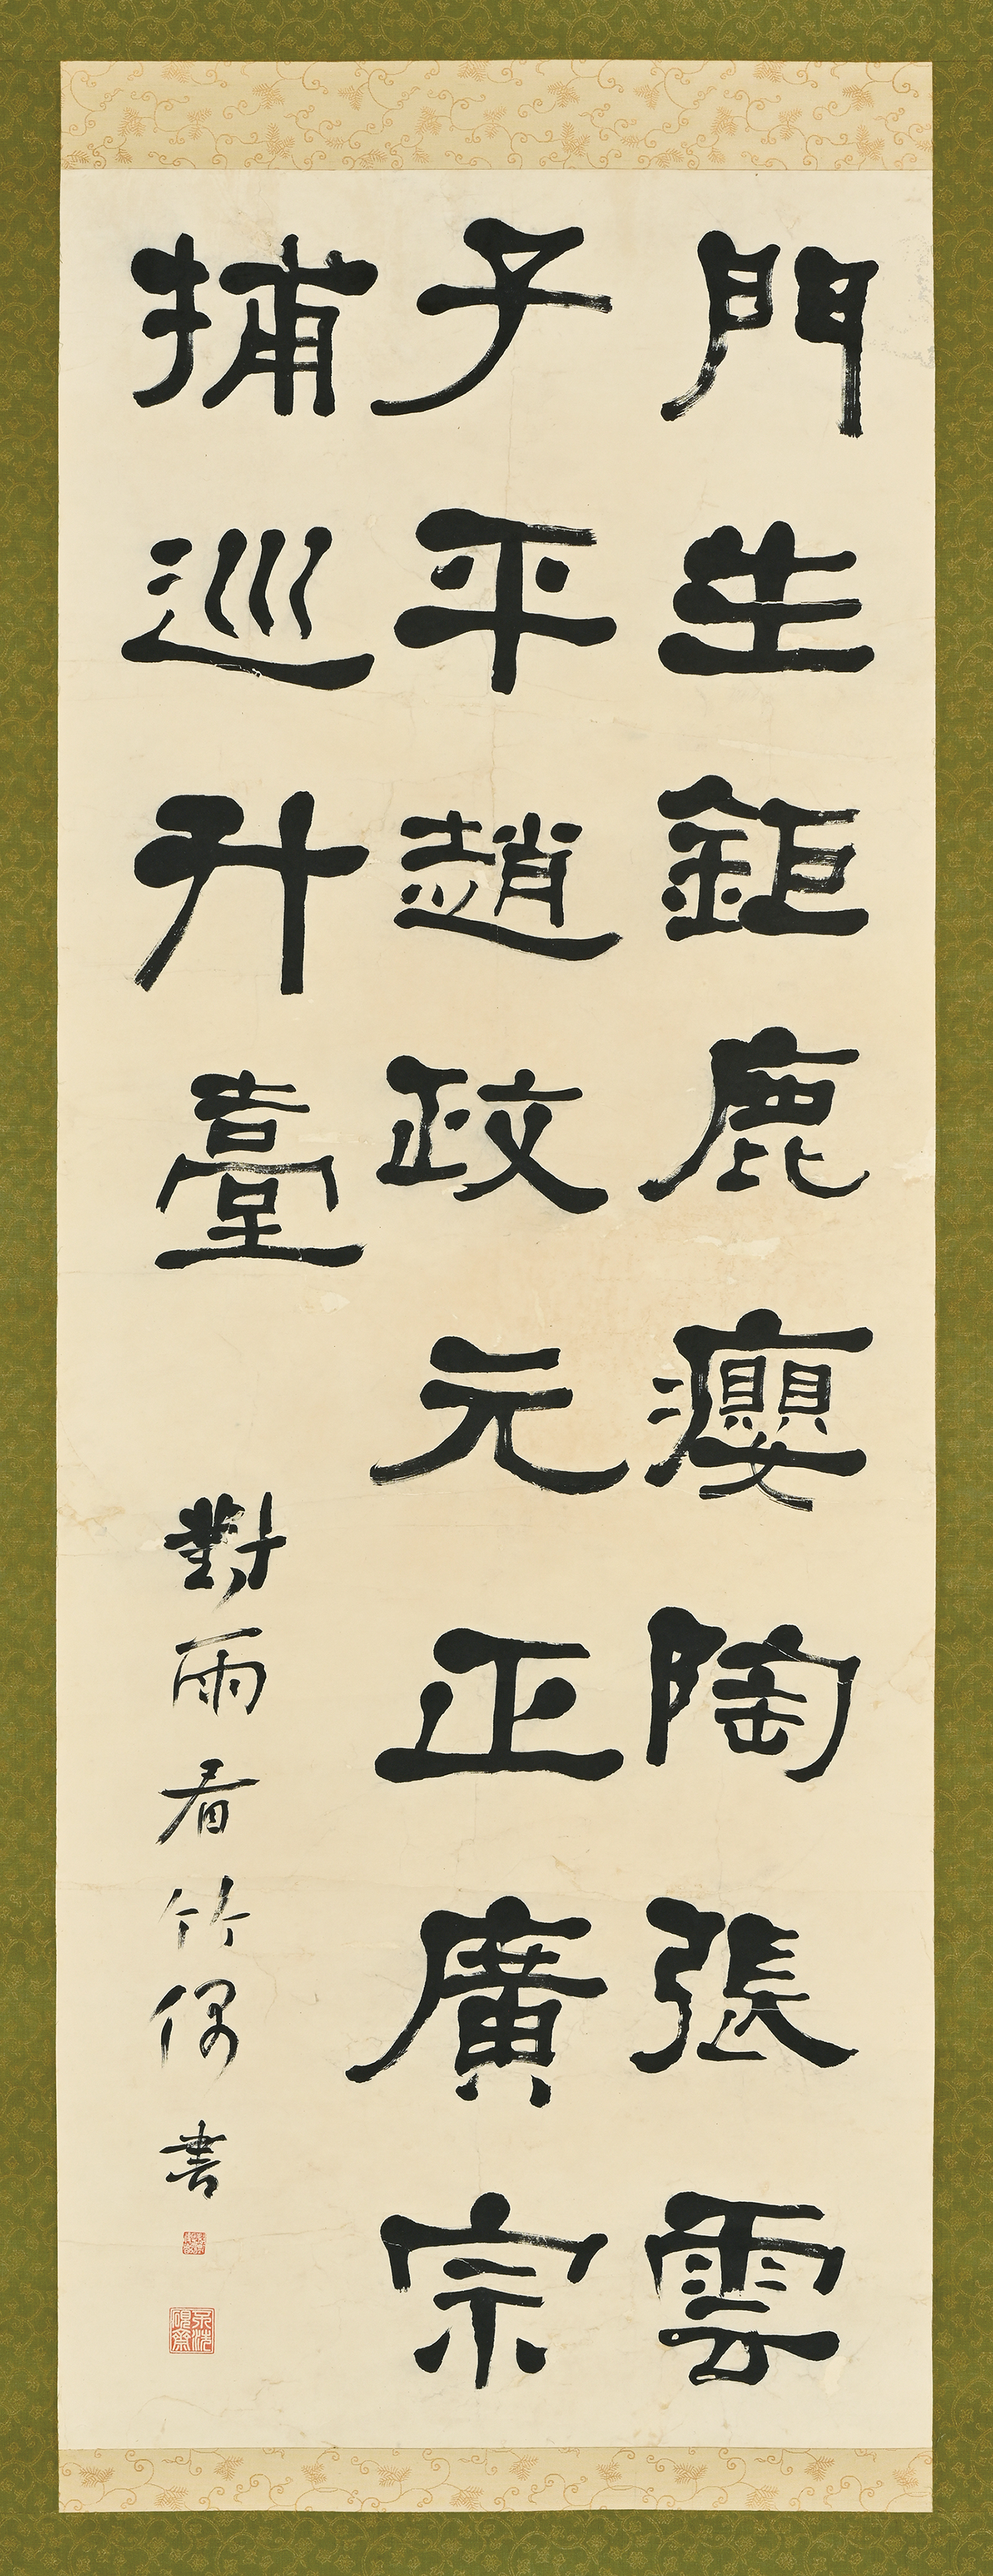 門生鉅鹿癭陶張雲
子平趙政元正廣宗
捕巡升臺
對雨看竹偶書